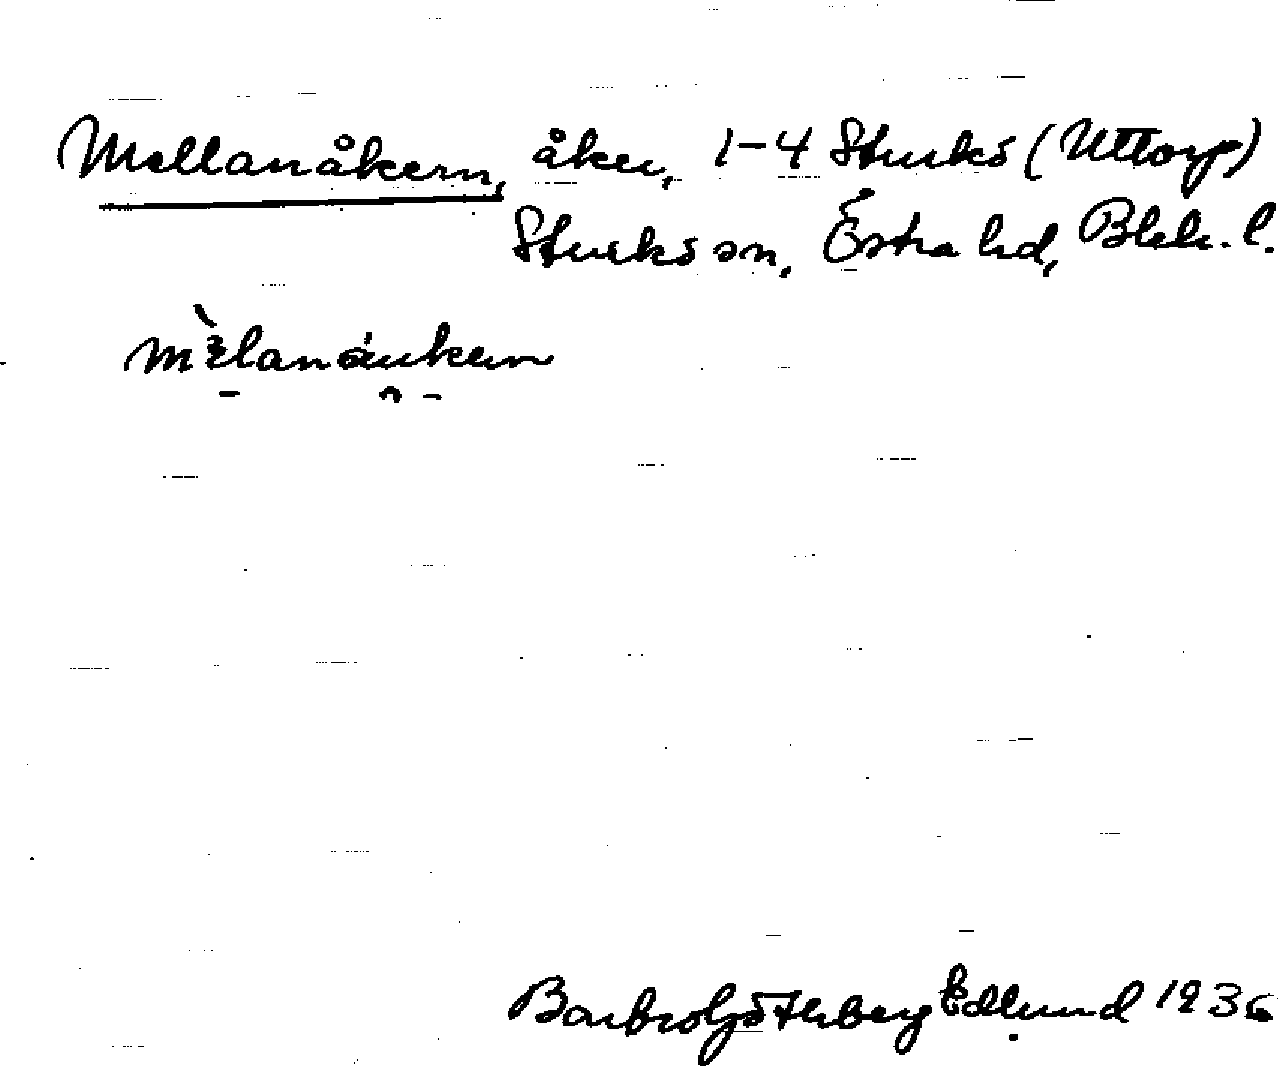 Mellanåkern, åker, 1-4 Sturkö (Uttorp)
Sturkö sn, Östra hd, Blek. l.
Barbro Götherberg Edlund 1936